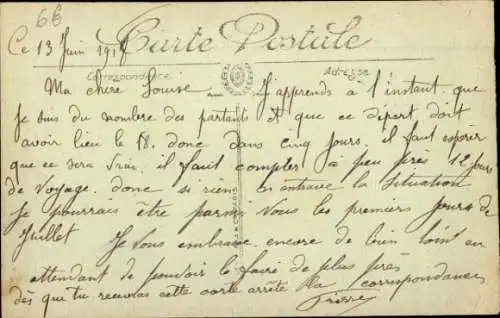 66
Ce 13 Juin 191
Carte Postale
Correspondance
Adresse
Ma chère Louise J'apprends à l'instant que
je suis du nombre des partants et que ce départ doit
avoir lieu le 18. donc dans cinq jours, il faut espérer
que ce sera vrai il faut compter à peu près 12 jours
de voyage. donc si rien entrave la situation
je pourrais être parmi vous les premiers jours de
Juillet Je vous embrasse encore de bien loin en
attendant de pouvoir le faire de plus près
dès que tu recevras cette carte arrête la correspondance